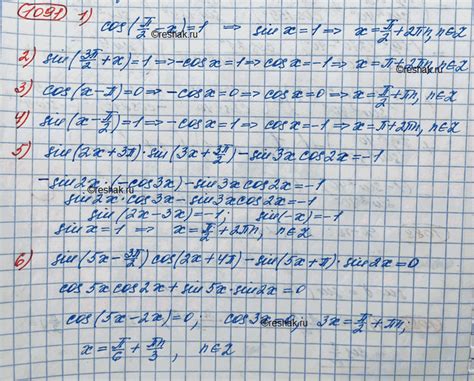 1091 1) cos(π/2 - x) = 1 ⇒ sin x = 1 ⇒ x = π/2 + 2πn, n∈Z
©reshak.ru
2) sin(3π/2 + x) = 1 ⇒ -cos x = 1 ⇒ cos x = -1 ⇒ x = π + 2πn, n∈Z
3) cos(x - π) = 0 ⇒ -cos x = 0 ⇒ cos x = 0 ⇒ x = π/2 + πn, n∈Z
4) sin(x - π/2) = 1 ⇒ -cos x = 1 ⇒ cos x = -1 ⇒ x = π + 2πn, n∈Z
5) sin(2x + 3π) · sin(3x + 3π/2) - sin 3x cos 2x = -1
-sin 2x · (-cos 3x) - sin 3x cos 2x = -1
©reshak.ru
sin 2x · cos 3x - sin 3x cos 2x = -1
sin(2x - 3x) = -1; sin(-x) = -1
sin x = 1 ⇒ x = π/2 + 2πn, n∈Z
6) sin(5x - 3π/2) cos(2x + 4π) - sin(5x + π) · sin 2x = 0
cos 5x cos 2x + sin 5x · sin 2x = 0
cos(5x - 2x) = 0; cos 3x = 0; 3x = π/2 + πn;
©reshak.ru
x = π/6 + πn/3, n∈Z